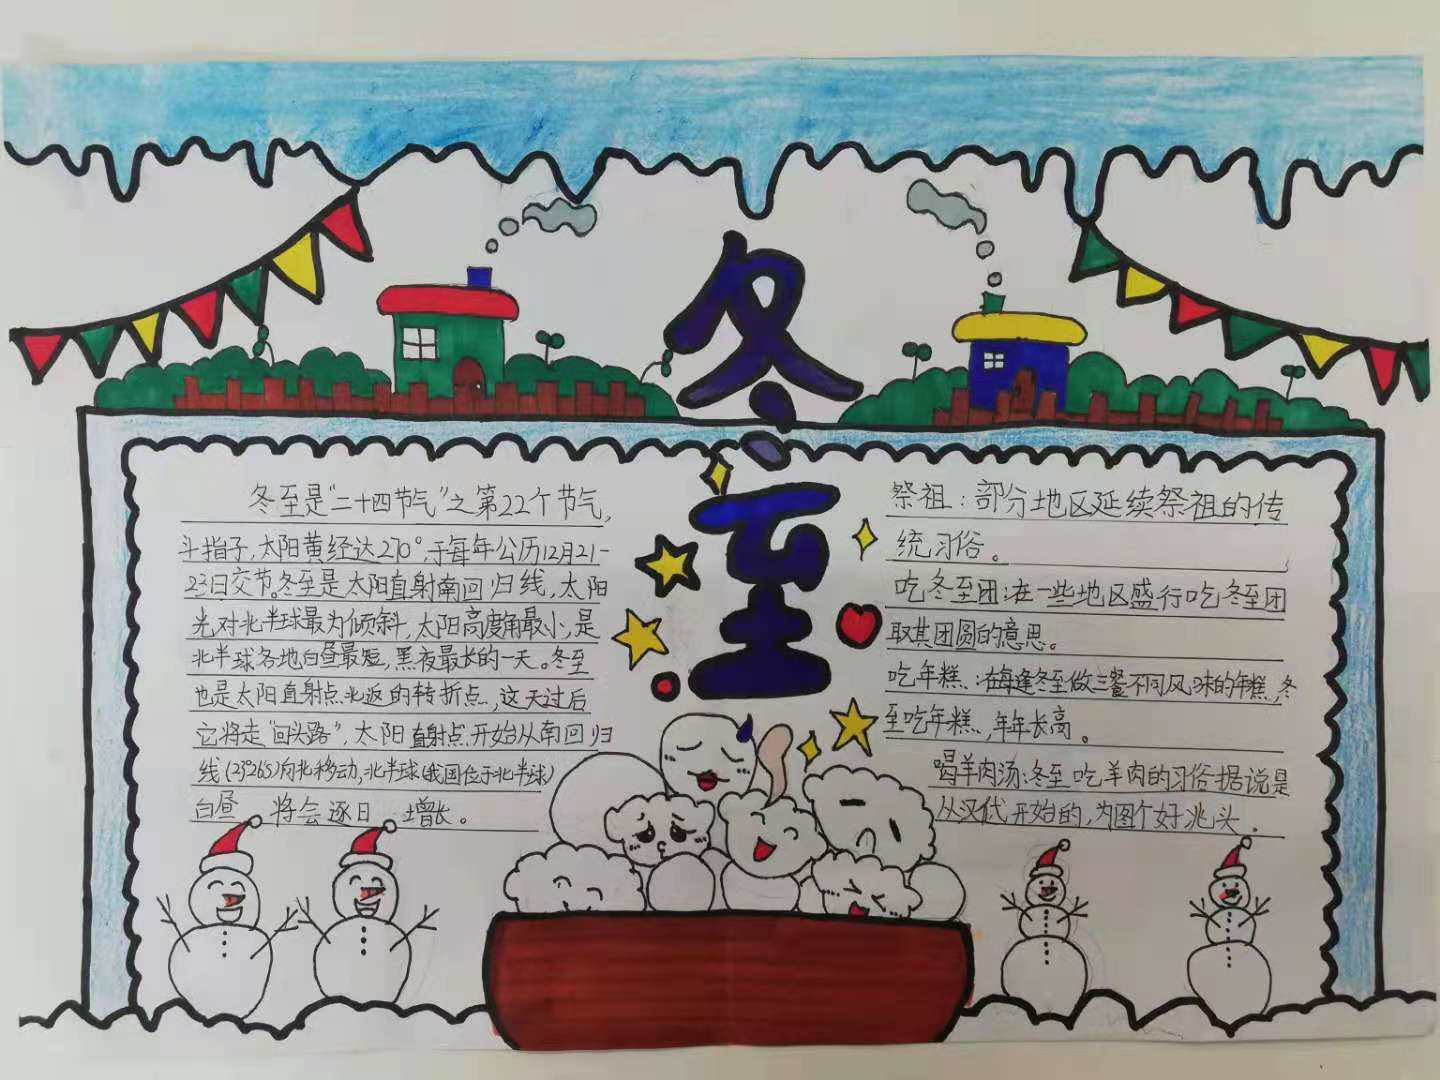 冬至
冬至是"二十四节气"之第22个节气,
斗指子,太阳黄经达270°,于每年公历12月21-
23日交节。冬至是太阳直射南回归线,太阳
光对北半球最为倾斜,太阳高度角最小,是
北半球各地白昼最短,黑夜最长的一天。冬至
也是太阳直射点北返的转折点,这天过后
它将走"回头路",太阳直射点开始从南回归
线(23°26S)向北移动,北半球(我国位于北半球)
白昼 将会逐日 增长。
祭祖:部分地区延续祭祖的传
统习俗。
吃冬至团:在一些地区盛行吃冬至团
取其团圆的意思。
吃年糕:在每逢冬至做三餐不同风味的年糕,冬
至吃年糕,年年长高。
喝羊肉汤:冬至吃羊肉的习俗据说是
从汉代开始的,为图个好兆头.